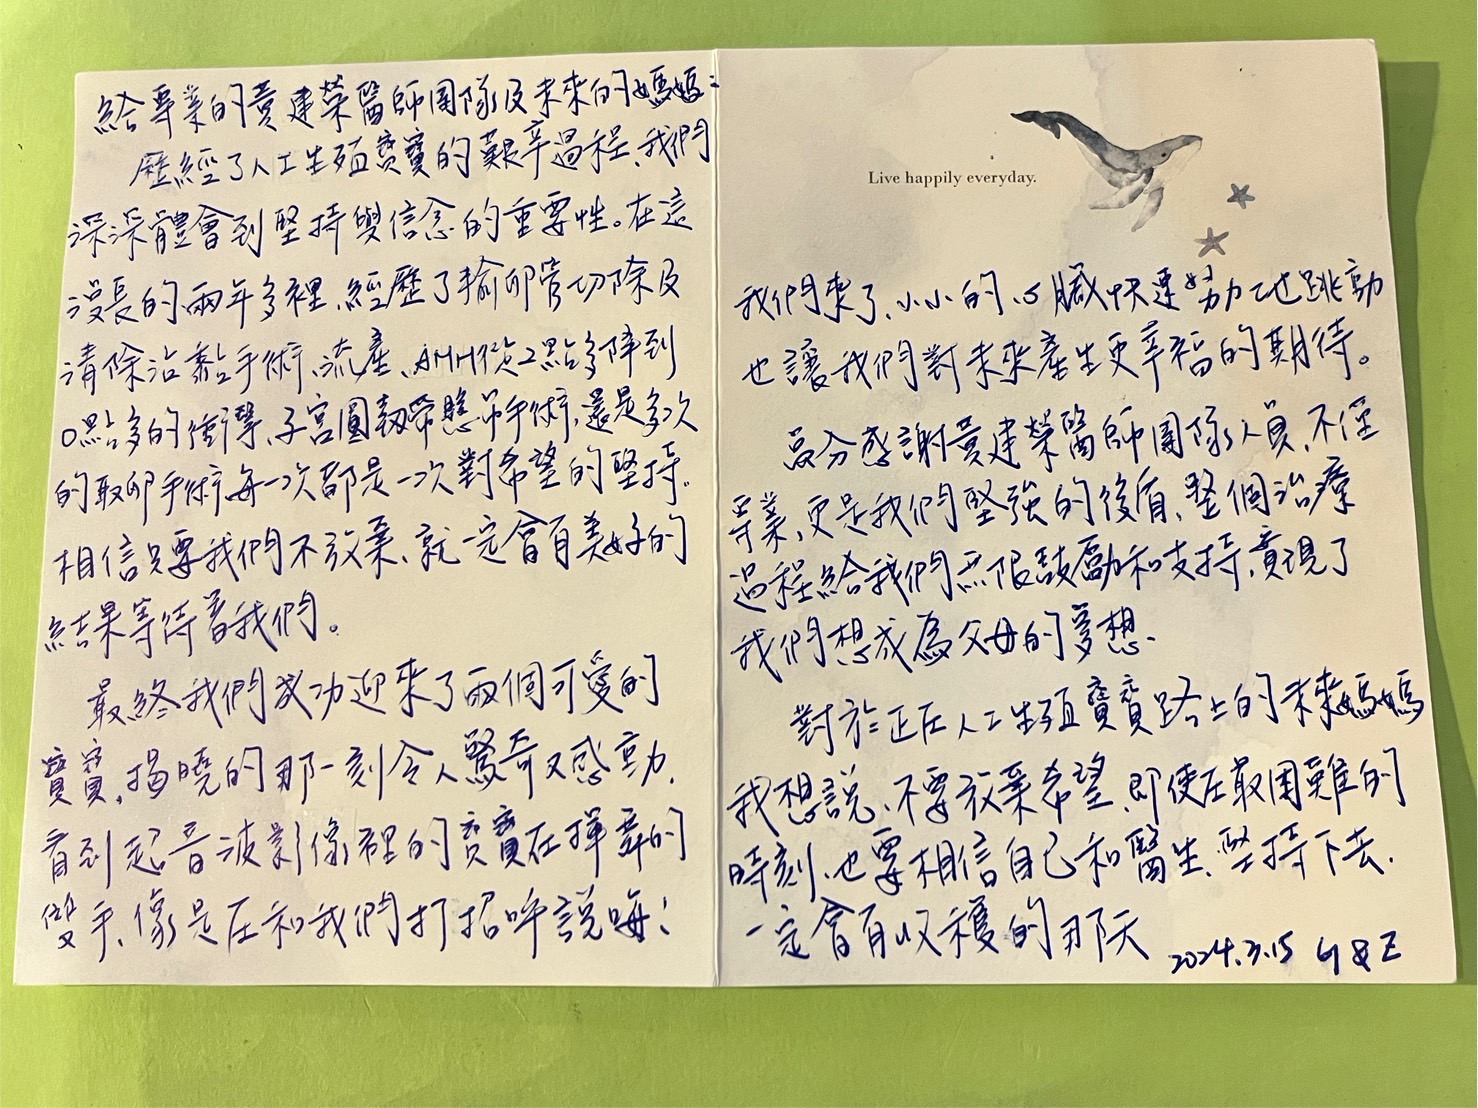 給專業的黃建榮醫師團隊及未來的媽媽：
歷經了人工生殖寶寶的艱辛過程、我們
深深體會到堅持與信念的重要性。在這
漫長的兩年多裡、經歷了輸卵管切除及
清除沾黏手術、流產、AMH從2點多降到
0點多的衝擊、子宮圓韌帶懸吊手術、還是多次
的取卵手術、每一次都是一次對希望的堅持。
相信只要我們不放棄、就一定會有美好的
結果等待着我們。
最終我們成功迎來了兩個可愛的
寶寶，揭曉的那一刻令人驚奇又感動、
看到超音波影像裡的寶寶在揮舞的
雙手、像是在和我們打招呼說嗨！
Live happily everyday.
我們來了、小小的心臟快速努力地跳動
也讓我們對未來產生更幸福的期待。
萬分感謝黃建榮醫師團隊人員、不僅
專業、更是我們堅強的後盾、整個治療
過程給我們無限鼓勵和支持、實現了
我們想成為父母的夢想、
對於正在人工生殖寶寶路上的未來媽媽
我想說、不要放棄希望、即使在最困難的
時刻、也要相信自己和醫生、堅持下去、
一定會有收穫的那天
2024.3.15 G & E